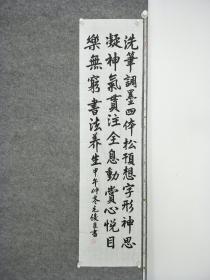 洗筆調墨四体松預想字形神思
凝神氣貫注全息動賞心悦目
樂無窮書法养生甲午仲冬元俊臣書